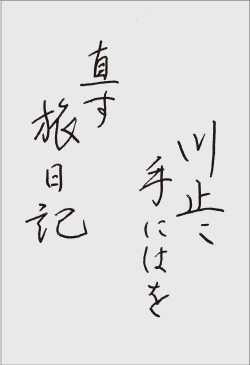 川止に
手にはを
直す
旅日記